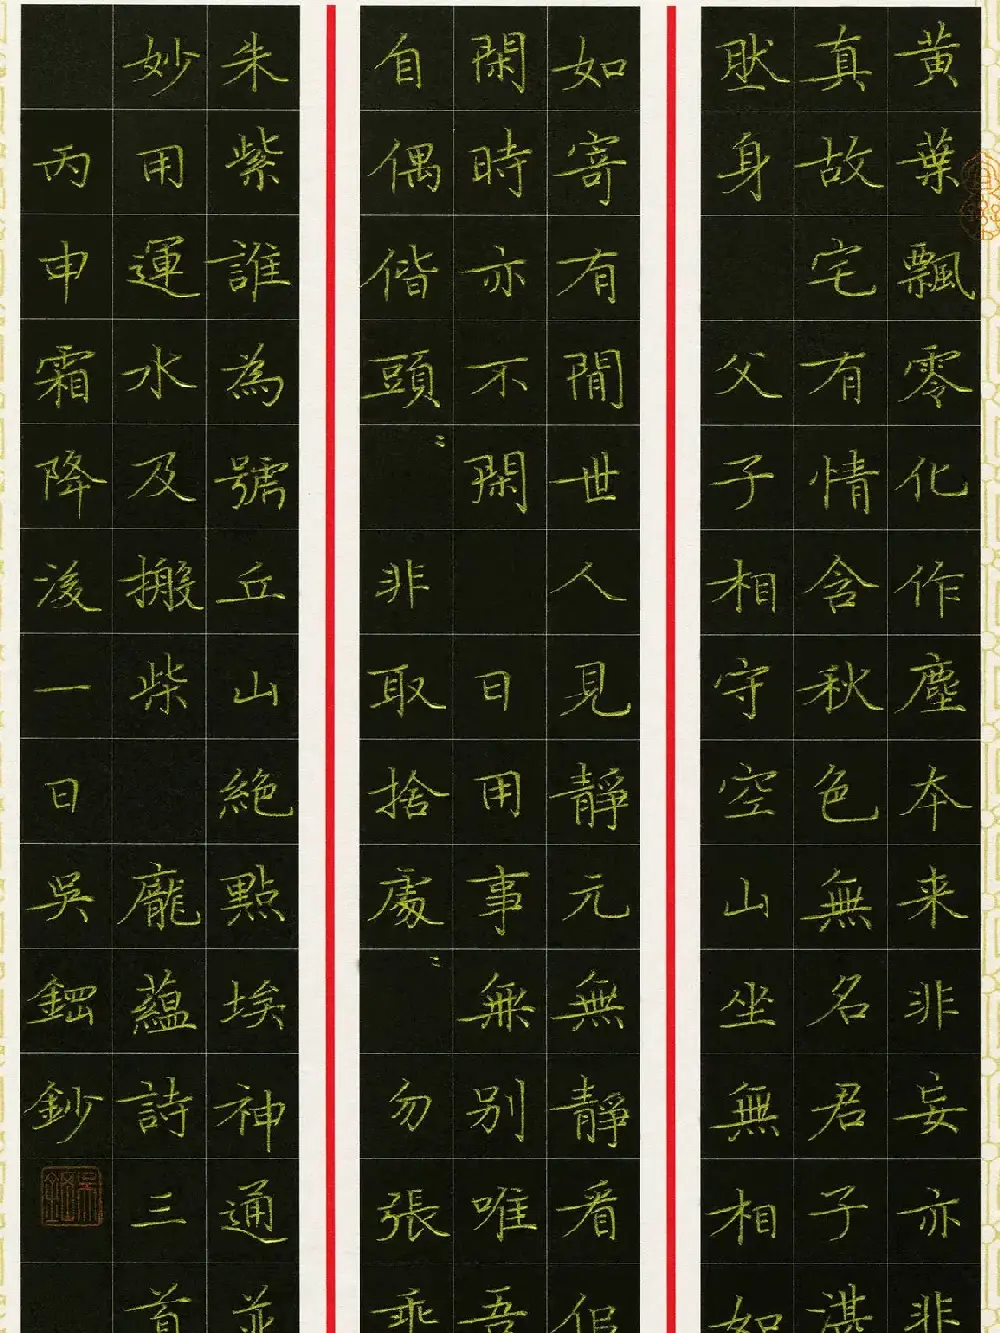 黄葉飄零化作塵本来非妄亦非
真故宅有情含秋色無名君子湛
肰身 父子相守空山坐無相如
如寄有閒世人見靜元無靜看
閑時亦不閑 日用事無別唯吾
自偶偕頭〻 非取捨處〻勿張乖
朱紫誰為號丘山絶點埃神通並
妙用運水及搬柴 龐藴詩三首
丙申霜降後一日吳鈿鈔